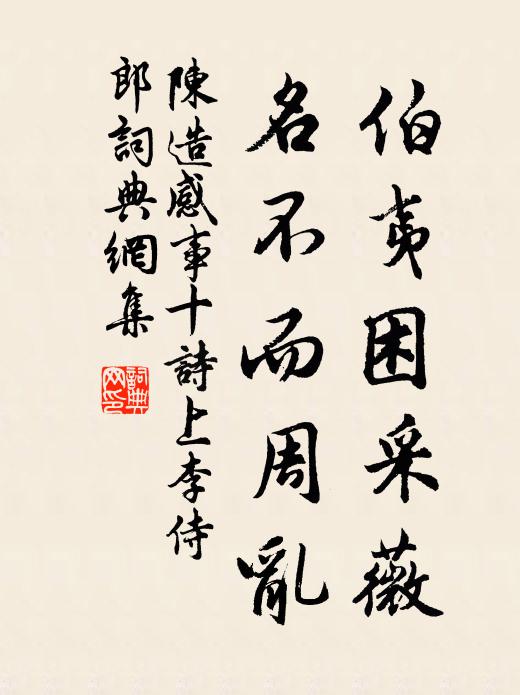 伯夷困采薇
名不而周亂
陳造感事十詩上李侍
郎詞典網集
詞典網印